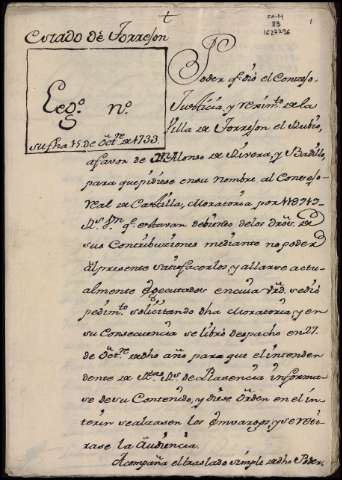 Estado de Torrejon
Leg.º n.º
su fha 15. de Oct.re de 1733.
1
Poder q.e dio el Concejo,
Justicia, y rexim.to de la
Villa de Torrejon el Rubio,
a favor de Dn Alonso de Rivera, y Badillo,
para que pidiese en su nombre al Consejo
Real de Castilla, Moratoria por
Rs. Vn q.e estavan debiendo de los Dros de
sus Contribuciones mediante no poder
al presente satisfacerlos, y allarse actu-
almente Executados en cuia Vrd. se dio
pedim.to solicitando dha Moratoria, y en
su Consecuencia se libró despacho en 27.
de Oct.re de dho año para que el inten-
dente de Plasencia informa-
se de su Contenido, y diese Orden en el in-
terin se alzasen los embargos, y se reti-
rase la Audiencia.
Acompaña el traslado simple de dho Poder.